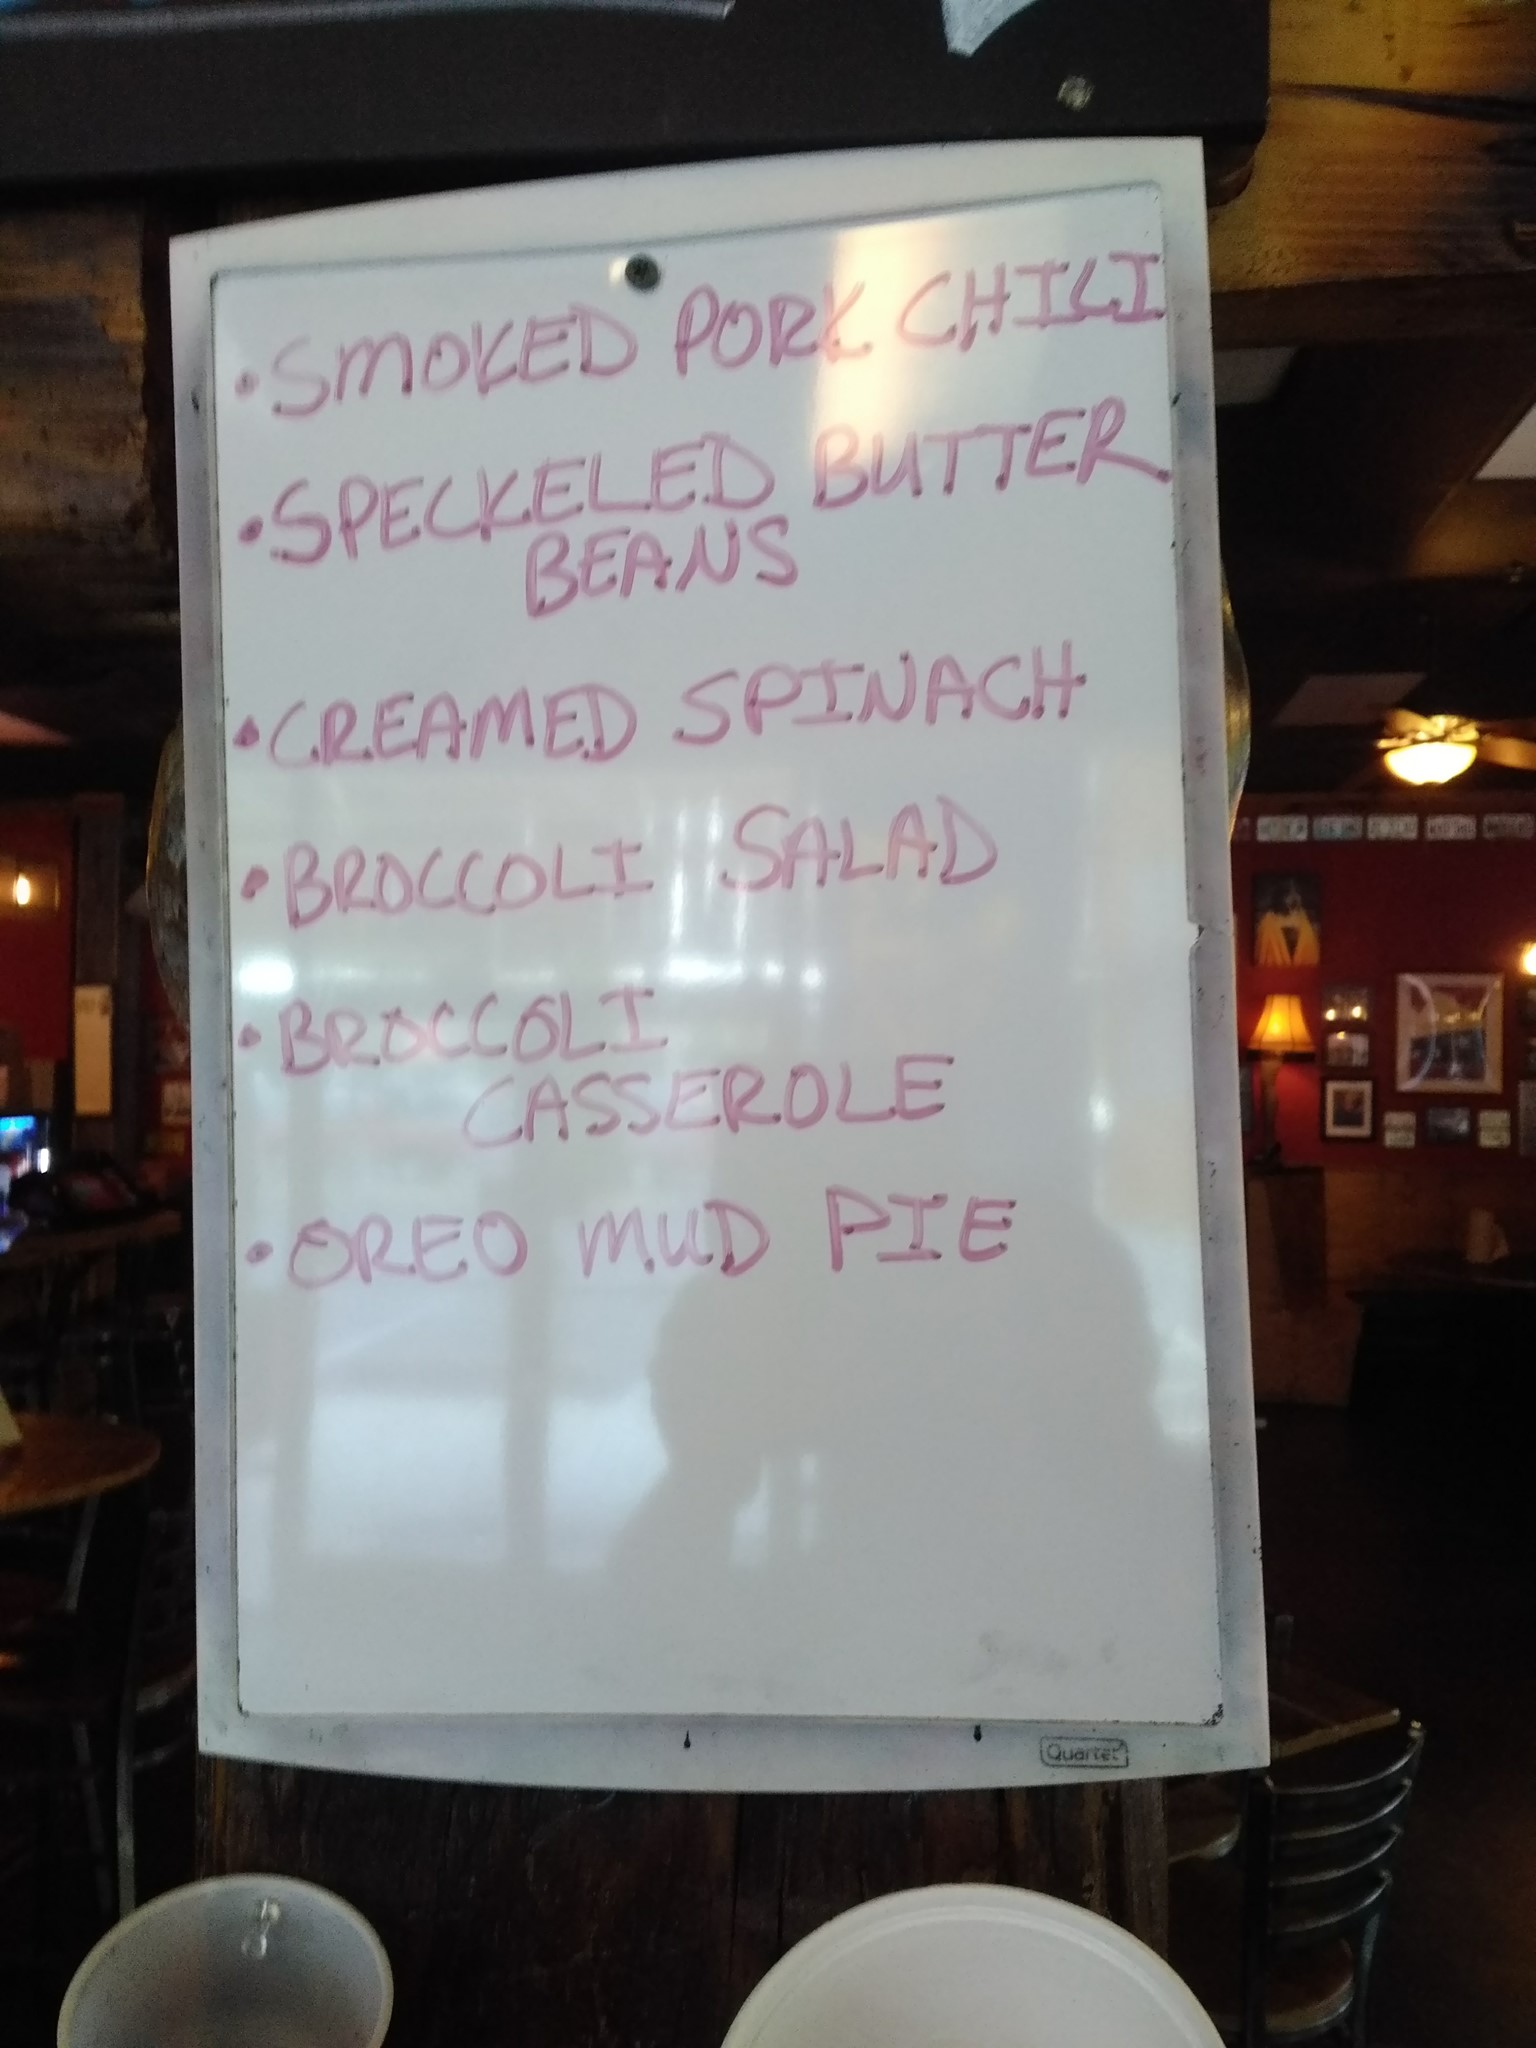 • SMOKED PORK CHILI
• SPECKELED BUTTER
BEANS
• CREAMED SPINACH
• BROCCOLI SALAD
• BROCCOLI
CASSEROLE
• OREO MUD PIE
Quartet